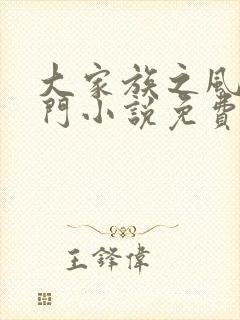 大家族之風
門小說免費
王鐸偉